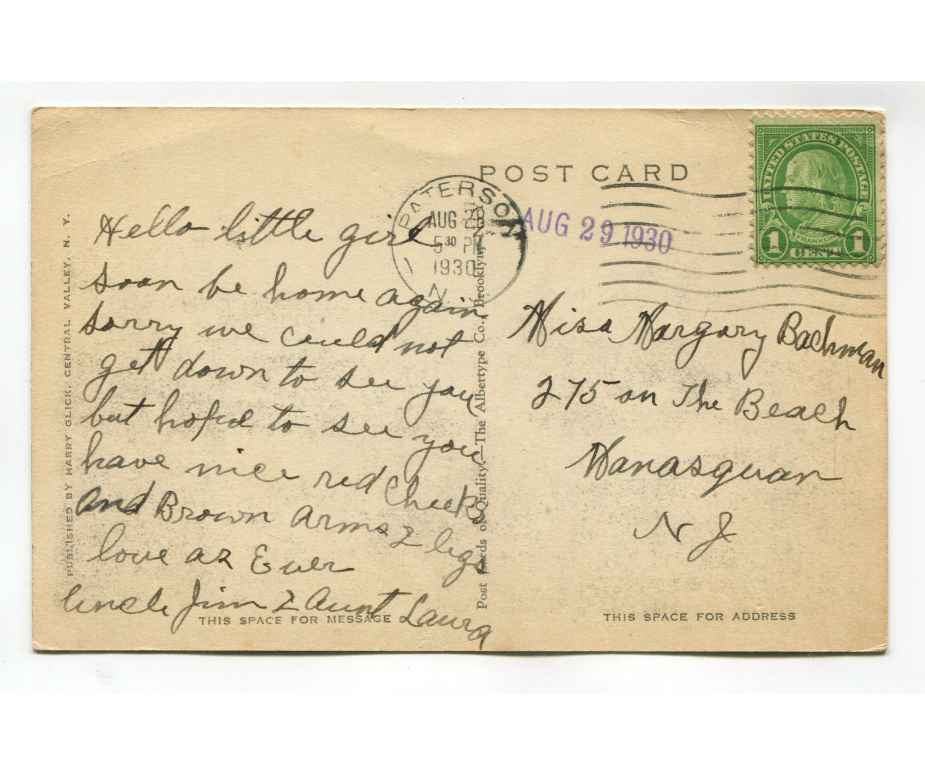 POST CARD
UNITED STATES POSTAGE
FRANKLIN
1 CENT 1
PATERSON
AUG 2
5 30 P
1930
N.
AUG 29 1930
Hello little girl
soon be home again
sorry we could not
get down to see you
but hoped to see you
have nice red Cheeks
and Brown arms & legs
love as Ever
Uncle Jim & Aunt Laura
THIS SPACE FOR MESSAGE
PUBLISHED BY HARRY GLICK, CENTRAL VALLEY, N. Y.
Post Cards of Quality.—The Albertype Co., Brooklyn, N.Y.
Miss Margary Bachman
275 on The Beach
Manasquan
N J
THIS SPACE FOR ADDRESS